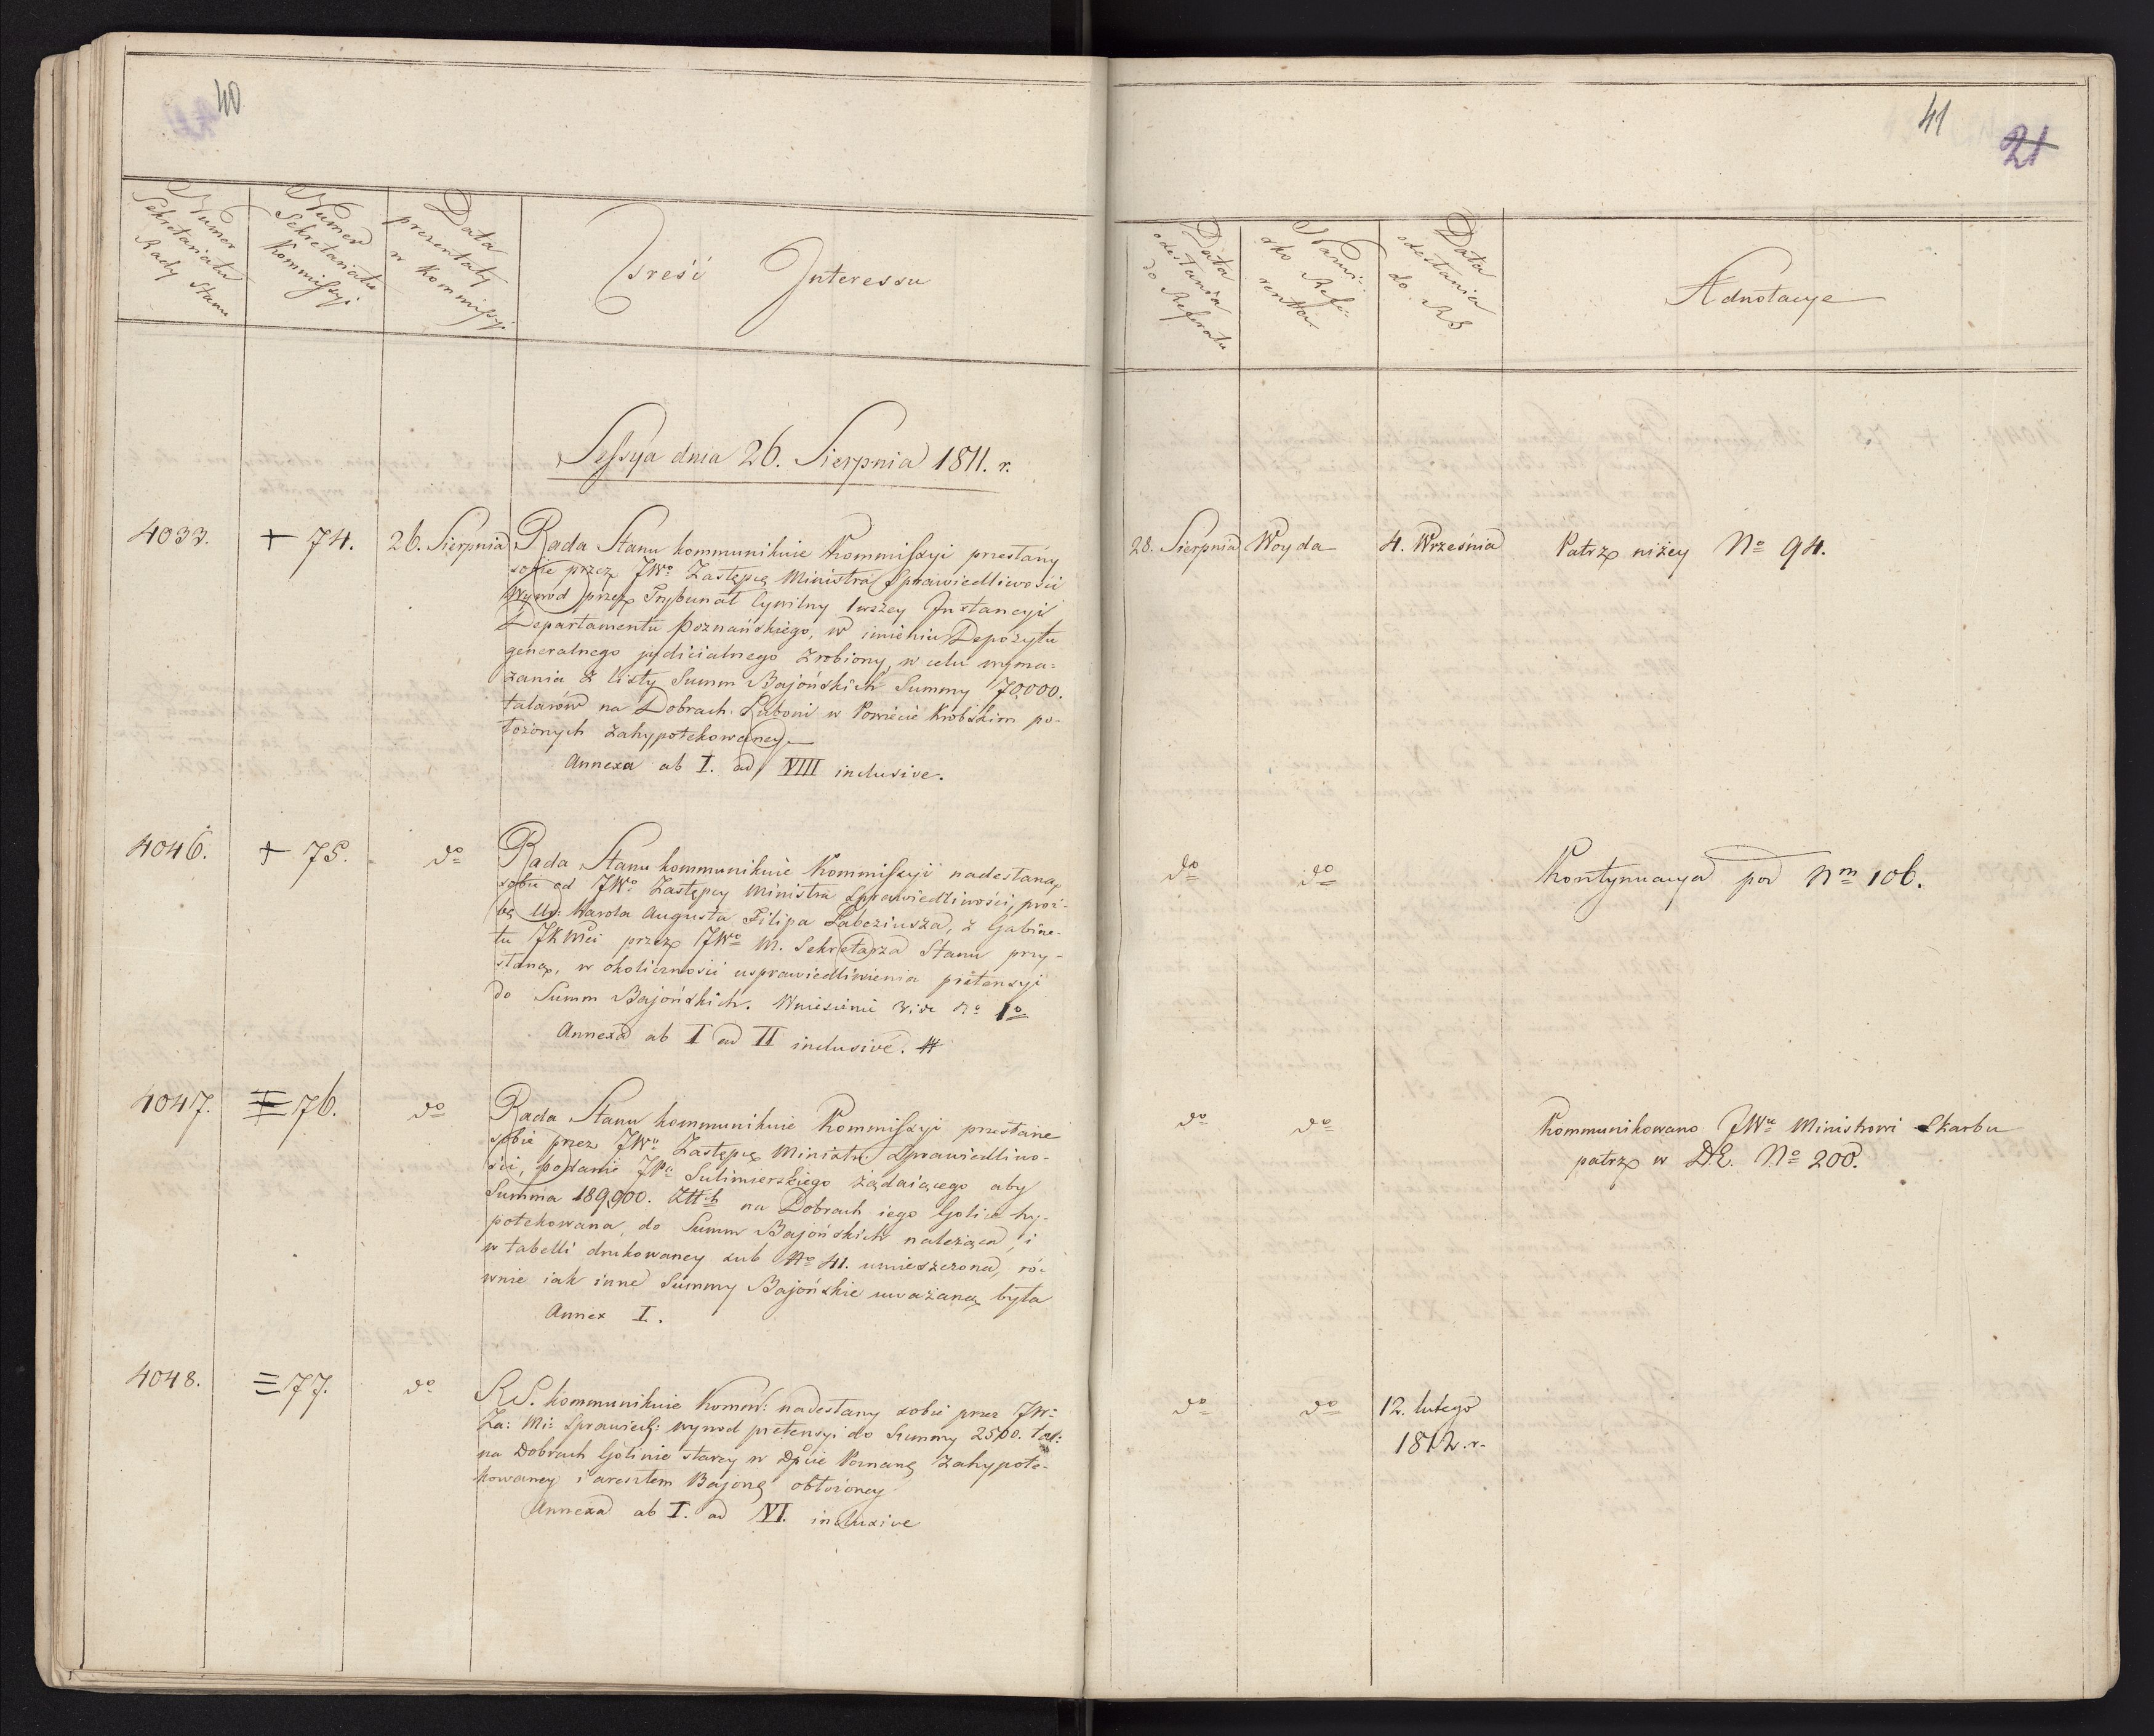 40
Numer Sekretariatu Rady Stanu
Numer Sekretariatu Kommissyi
Data prezentaty w Kommissyi
Treść Interessu
Sessya dnia 26. Sierpnia 1811. r.
4033. + 74. 26. Sierpnia
Rada Stanu kommunikuie Kommissyi przesłany
sobie przez JWo Zastępcę Ministra Sprawiedliwości
Wywod przez Trybunał Cywilny 1wszey Instancyi
Departamentu Poznańskiego, w imieniu Depozytu
generalnego judicialnego zrobiony, w celu wyma-
zania z listy Summ Bajońskich Summy 70,000.
talarów na Dobrach Luboni w Powiecie Krobskim po-
łożonych zahypotekowaney
Annexa ab I. ad VIII inclusive.
4046. + 75. do
Rada Stanu kommunikuie Kommissyi nadesłaną
sobie od JWo Zastępcy Ministra Sprawiedliwości, proź-
bę Ur: Karola Augusta Filipa Labeziusza, z Gabine-
tu JKMci przez JWo M. Sekretarza Stanu przy-
słaną, w okoliczności usprawiedliwienia pretensyi
do Summ Bajońskich. Wniesienie vide No 1o
Annexa ab I ad II inclusive.
4047. 76. do
Rada Stanu kommunikuie Kommissyi przesłane
sobie przez JWo Zastępcę Ministra Sprawiedliwo-
ści, podanie JPa Sulimierskiego żądaiącego aby
Summa 189,900. Złtch na Dobrach iego Golice hy-
potekowana, do Summ Bajońskich należąca, i
w tabelli drukowaney sub No 41. umieszczona, ró-
wnie iak inne Summy Bajońskie uważaną była
Annex I.
4048. = 77. do
RS. kommunikuie Komm: nadesłany sobie przez JWo
Za: Mi: Sprawiedl: wywod pretensyi do Summy 2500. tal:
na Dobrach Golinie starey w Dpcie Poznang zahypote-
kowaney i aresztem Bajong obłożoney
Annexa ab I. ad VI. inclusive
41
21
Data odesłania do Referatu
Nazwi-
sko Refe-
renta
Data odesłania do RS
Adnotacye
28. Sierpnia Woyda 4. Września Patrz niżey No 94.
do do Kontynuacya pod Nm 106.
do do Kommunikowano JWu Ministrowi Skarbu
patrz w D.E. No 200.
do do 12. lutego
1812. r.